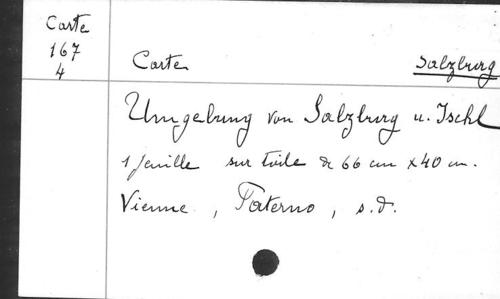 Carte
167
4
Carte Salzburg
Umgebung von Salzburg u. Ischl
1 feuille sur toile de 66 cm x 40 cm.
Vienne, Paterno, s.d.